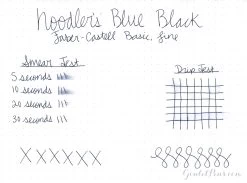 Noodler's Blue Black
Faber-Castell Basic, fine
Smear Test
5 seconds
10 seconds
20 seconds
30 seconds
Drip Test
XXXXXX